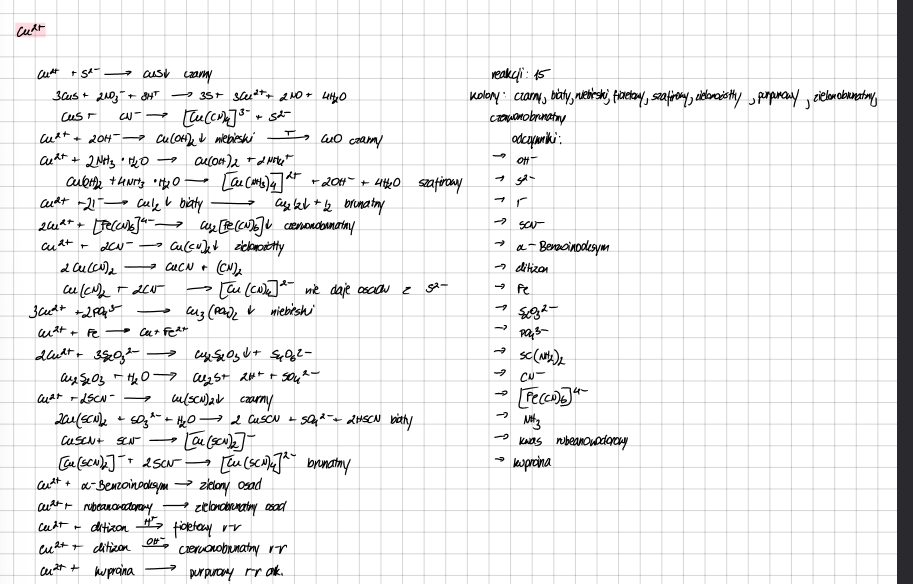 Cu²⁺
Cu²⁺ + S²⁻ → CuS↓ czarny
3CuS + 2NO₃⁻ + 8H⁺ → 3S + 3Cu²⁺ + 2NO + 4H₂O
CuS + CN⁻ → [Cu(CN)₄]³⁻ + S²⁻
Cu²⁺ + 2OH⁻ → Cu(OH)₂↓ niebieski —T→ CuO czarny
Cu²⁺ + 2NH₃·H₂O → Cu(OH)₂ + 2NH₄⁺
Cu(OH)₂ + 4NH₃·H₂O → [Cu(NH₃)₄]²⁺ + 2OH⁻ + 4H₂O szafirowy
Cu²⁺ + 2I⁻ → CuI₂↓ biały → Cu₂I₂↓ + I₂ brunatny
2Cu²⁺ + [Fe(CN)₆]⁴⁻ → Cu₂[Fe(CN)₆]↓ czerwonobrunatny
Cu²⁺ + 2CN⁻ → Cu(CN)₂↓ zielonożółty
2Cu(CN)₂ → CuCN + (CN)₂
Cu(CN)₂ + 2CN⁻ → [Cu(CN)₄]²⁻ nie daje osadów z S²⁻
3Cu²⁺ + 2PO₄³⁻ → Cu₃(PO₄)₂↓ niebieski
Cu²⁺ + Fe → Cu + Fe²⁺
2Cu²⁺ + 3S₂O₃²⁻ → Cu₂S₂O₃↓ + S₄O₆²⁻
Cu₂S₂O₃ + H₂O → Cu₂S + 2H⁺ + SO₄²⁻
Cu²⁺ + 2SCN⁻ → Cu(SCN)₂↓ czarny
2Cu(SCN)₂ + SO₃²⁻ + H₂O → 2 CuSCN + SO₄²⁻ + 2HSCN biały
CuSCN + SCN⁻ → [Cu(SCN)₂]⁻
[Cu(SCN)₂]⁻ + 2SCN⁻ → [Cu(SCN)₄]²⁻ brunatny
Cu²⁺ + α-Benzoinoksym → zielony osad
Cu²⁺ + rubeanowodorowy → zielonobrunatny osad
Cu²⁺ + ditizon —H⁺→ fioletowy r-r
Cu²⁺ + ditizon —OH⁻→ czerwonobrunatny r-r
Cu²⁺ + kupraina → purpurowy r-r alk.
reakcji: 15
kolory: czarny, biały, niebieski, fioletowy, szafirowy, zielonożółty, purpurowy, zielonobrunatny,
czerwonobrunatny
odczynniki:
→ OH⁻
→ S²⁻
→ I⁻
→ SCN⁻
→ α-Benzoinoksym
→ ditizon
→ Fe
→ S₂O₃²⁻
→ PO₄³⁻
→ SC(NH₂)₂
→ CN⁻
→ [Fe(CN)₆]⁴⁻
→ NH₃
→ kwas rubeanowodorowy
→ kupraina